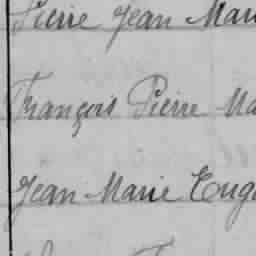 Pierre Jean Mari
François Pierre Ma
Jean-Marie Eug